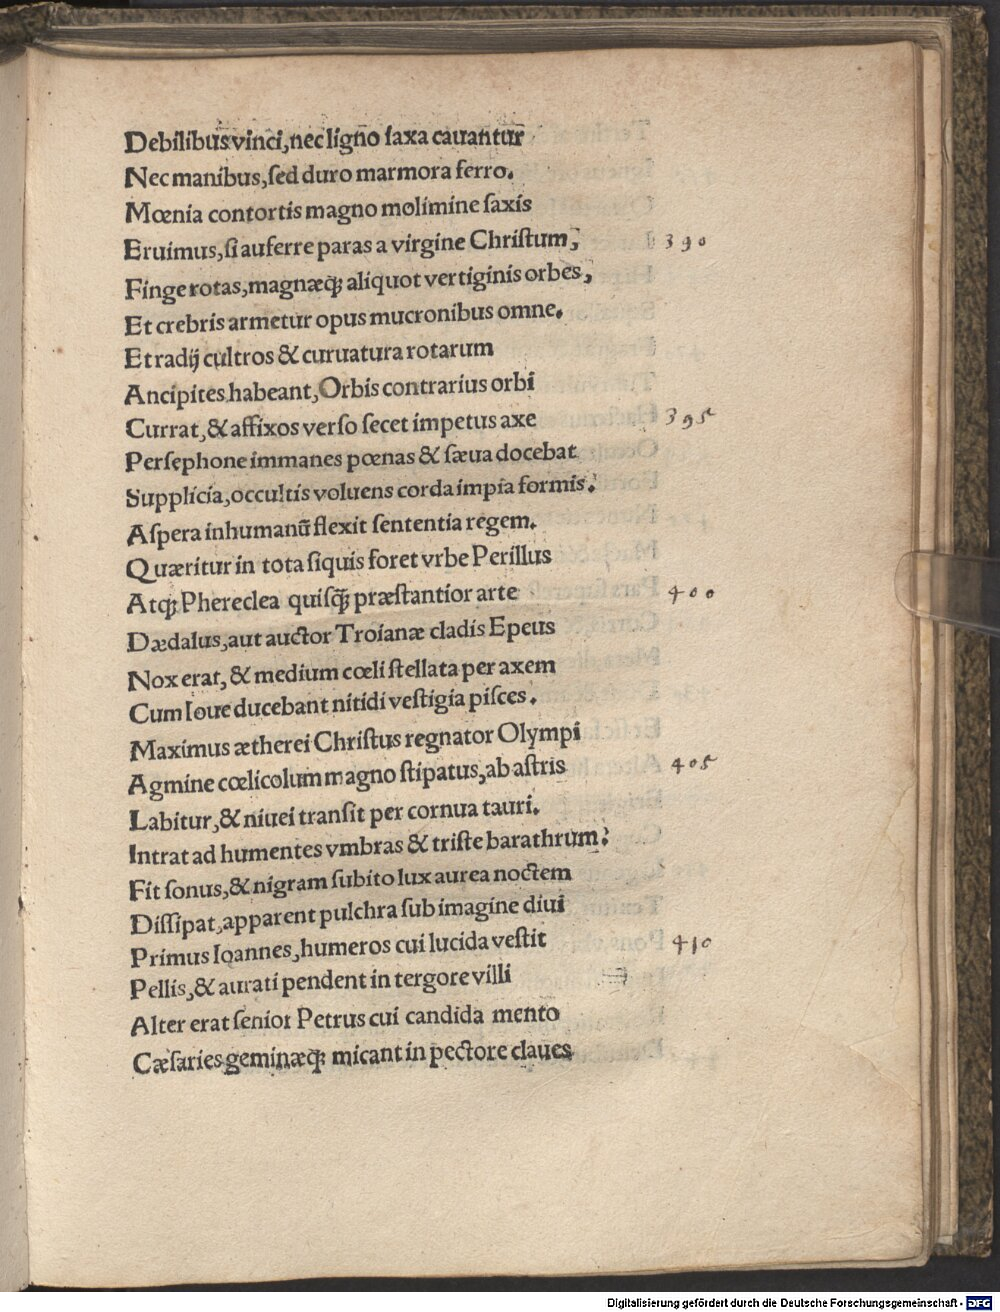 Debilibus vinci, nec ligno saxa cauantur
Nec manibus, sed duro marmora ferro.
Mœnia contortis magno molimine saxis
Eruimus, si auferre paras a virgine Christum, 390
Finge rotas, magnæq; aliquot vertiginis orbes,
Et crebris armetur opus mucronibus omne.
Et radij cultros & curuatura rotarum
Ancipites habeant, Orbis contrarius orbi
Currat, & affixos verso secet impetus axe 395
Persephone immanes pœnas & sæua docebat
Supplicia, occultis voluens corda impia formis.
Aspera inhumanū flexit sententia regem.
Quæritur in tota siquis foret vrbe Perillus
Atq; Phereclea quisq̃; præstantior arte 400
Dædalus, aut auctor Troianæ cladis Epeus
Nox erat, & medium cœli stellata per axem
Cum Ioue ducebant nitidi vestigia pisces.
Maximus ætherei Christus regnator Olympi
Agmine cœlicolum magno stipatus, ab astris 405
Labitur, & niuei transit per cornua tauri.
Intrat ad humentes vmbras & triste barathrum:
Fit sonus, & nigram subito lux aurea noctem
Dissipat, apparent pulchra sub imagine diui
Primus Ioannes, humeros cui lucida vestit 410
Pellis, & aurati pendent in tergore villi
Alter erat senior Petrus cui candida mento
Cæsaries geminæq; micant in pectore claues
Digitalisierung gefördert durch die Deutsche Forschungsgemeinschaft - DFG